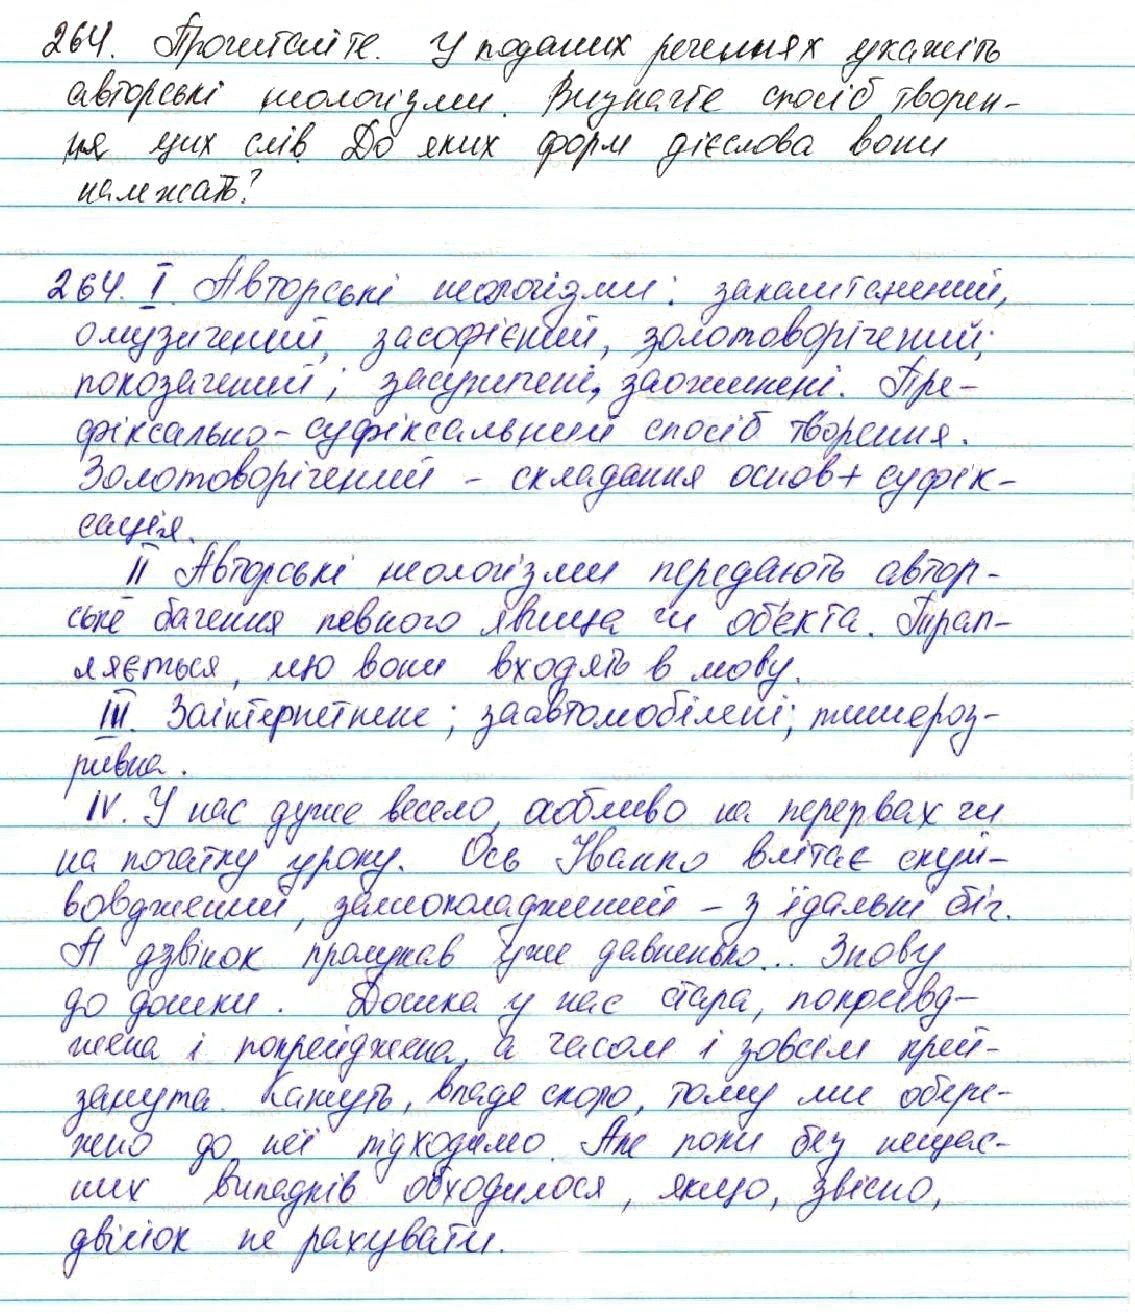 264. Прочитайте. У поданих реченнях укажіть
авторські неологізми. Визначте спосіб творен-
ня цих слів. До яких форм дієслова вони
належать?
264. I. Авторські неологізми: закаштанений,
омузичений, засофієний, золотоворічений;
покозачений; засуничені, заожинені. Пре-
фіксально-суфіксальний спосіб творення.
Золотоворічений - складання основ + суфік-
сація.
II Авторські неологізми передають автор-
ське бачення певного явища чи об'єкта. Трап-
ляється, що вони входять в мову.
III. Заінтернетнене; заавтомобілені; тишероз-
ривна.
IV. У нас дуже весело, особливо на перервах чи
на початку уроку. Ось Іванко влітає скуй-
вовджений, зашоколаджений - з їдальні біг.
А дзвінок пролунав уже давненько... Знову
до дошки. Дошка у нас стара,
і покрейджена, а часом і зовсім крей-
занута. Кажуть, впаде скоро, тому ми обере-
жно до неї підходимо. Але поки без нещас-
них випадків обходилося, якщо, звісно,
двійок не рахувати.